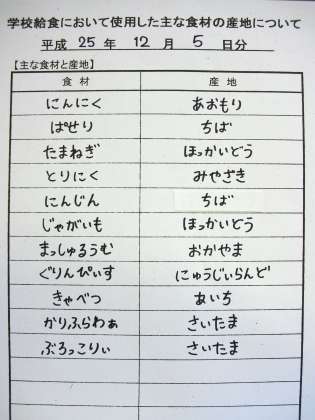 学校給食において使用した主な食材の産地について
平成 25 年 12 月 5 日分
【主な食材と産地】
食材 産地
にんにく あおもり
ぱせり ちば
たまねぎ ほっかいどう
とりにく みやざき
にんじん ちば
じゃがいも ほっかいどう
まっしゅるうむ おかやま
ぐりんぴぃす にゅうじぃらんど
きゃべつ あいち
かりふらわぁ さいたま
ぶろっこりぃ さいたま